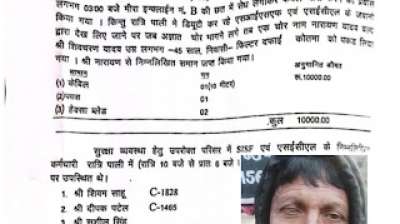 लगभग 03:00 बजे मीरा इन्क्लाईन नं. B की छत में सेंध लगाकर
किया गया । किन्तु रात्रि पाली में डियुटी कर रहे एसआईएसएफ एवं एसईसीएल के जवानों
द्वारा देख लिए जाने पर जब अज्ञात चोर भागने लगे तब एक चोर नाम नारायण यादव
श्री शिवचरण यादव उम्र लगभग -45 साल, निवासी- फिल्टर दफाई कोतमा को पकड़ लिया
गया । श्री नारायण से निम्नलिखित समान जप्त किया गया।
सामान अनुमानित कीमत
(1) केबिल 01(10 मीटर) रू.10000.00
(2) प्लास 01
(3) हेक्सा ब्लेड 02
कुल 10000.00
सुरक्षा व्यवस्था हेतु उपरोक्त परिसर में SISF एवं एसईसीएल के निम्नलिखित
कर्मचारी रात्रि पाली में (रात्रि 10 बजे से प्रातः 6 बजे
पर उपस्थित थे।
1. श्री शिवम साहू C-1828
2. श्री दीपक पटेल C-1465
3. श्री सुशील सिंह